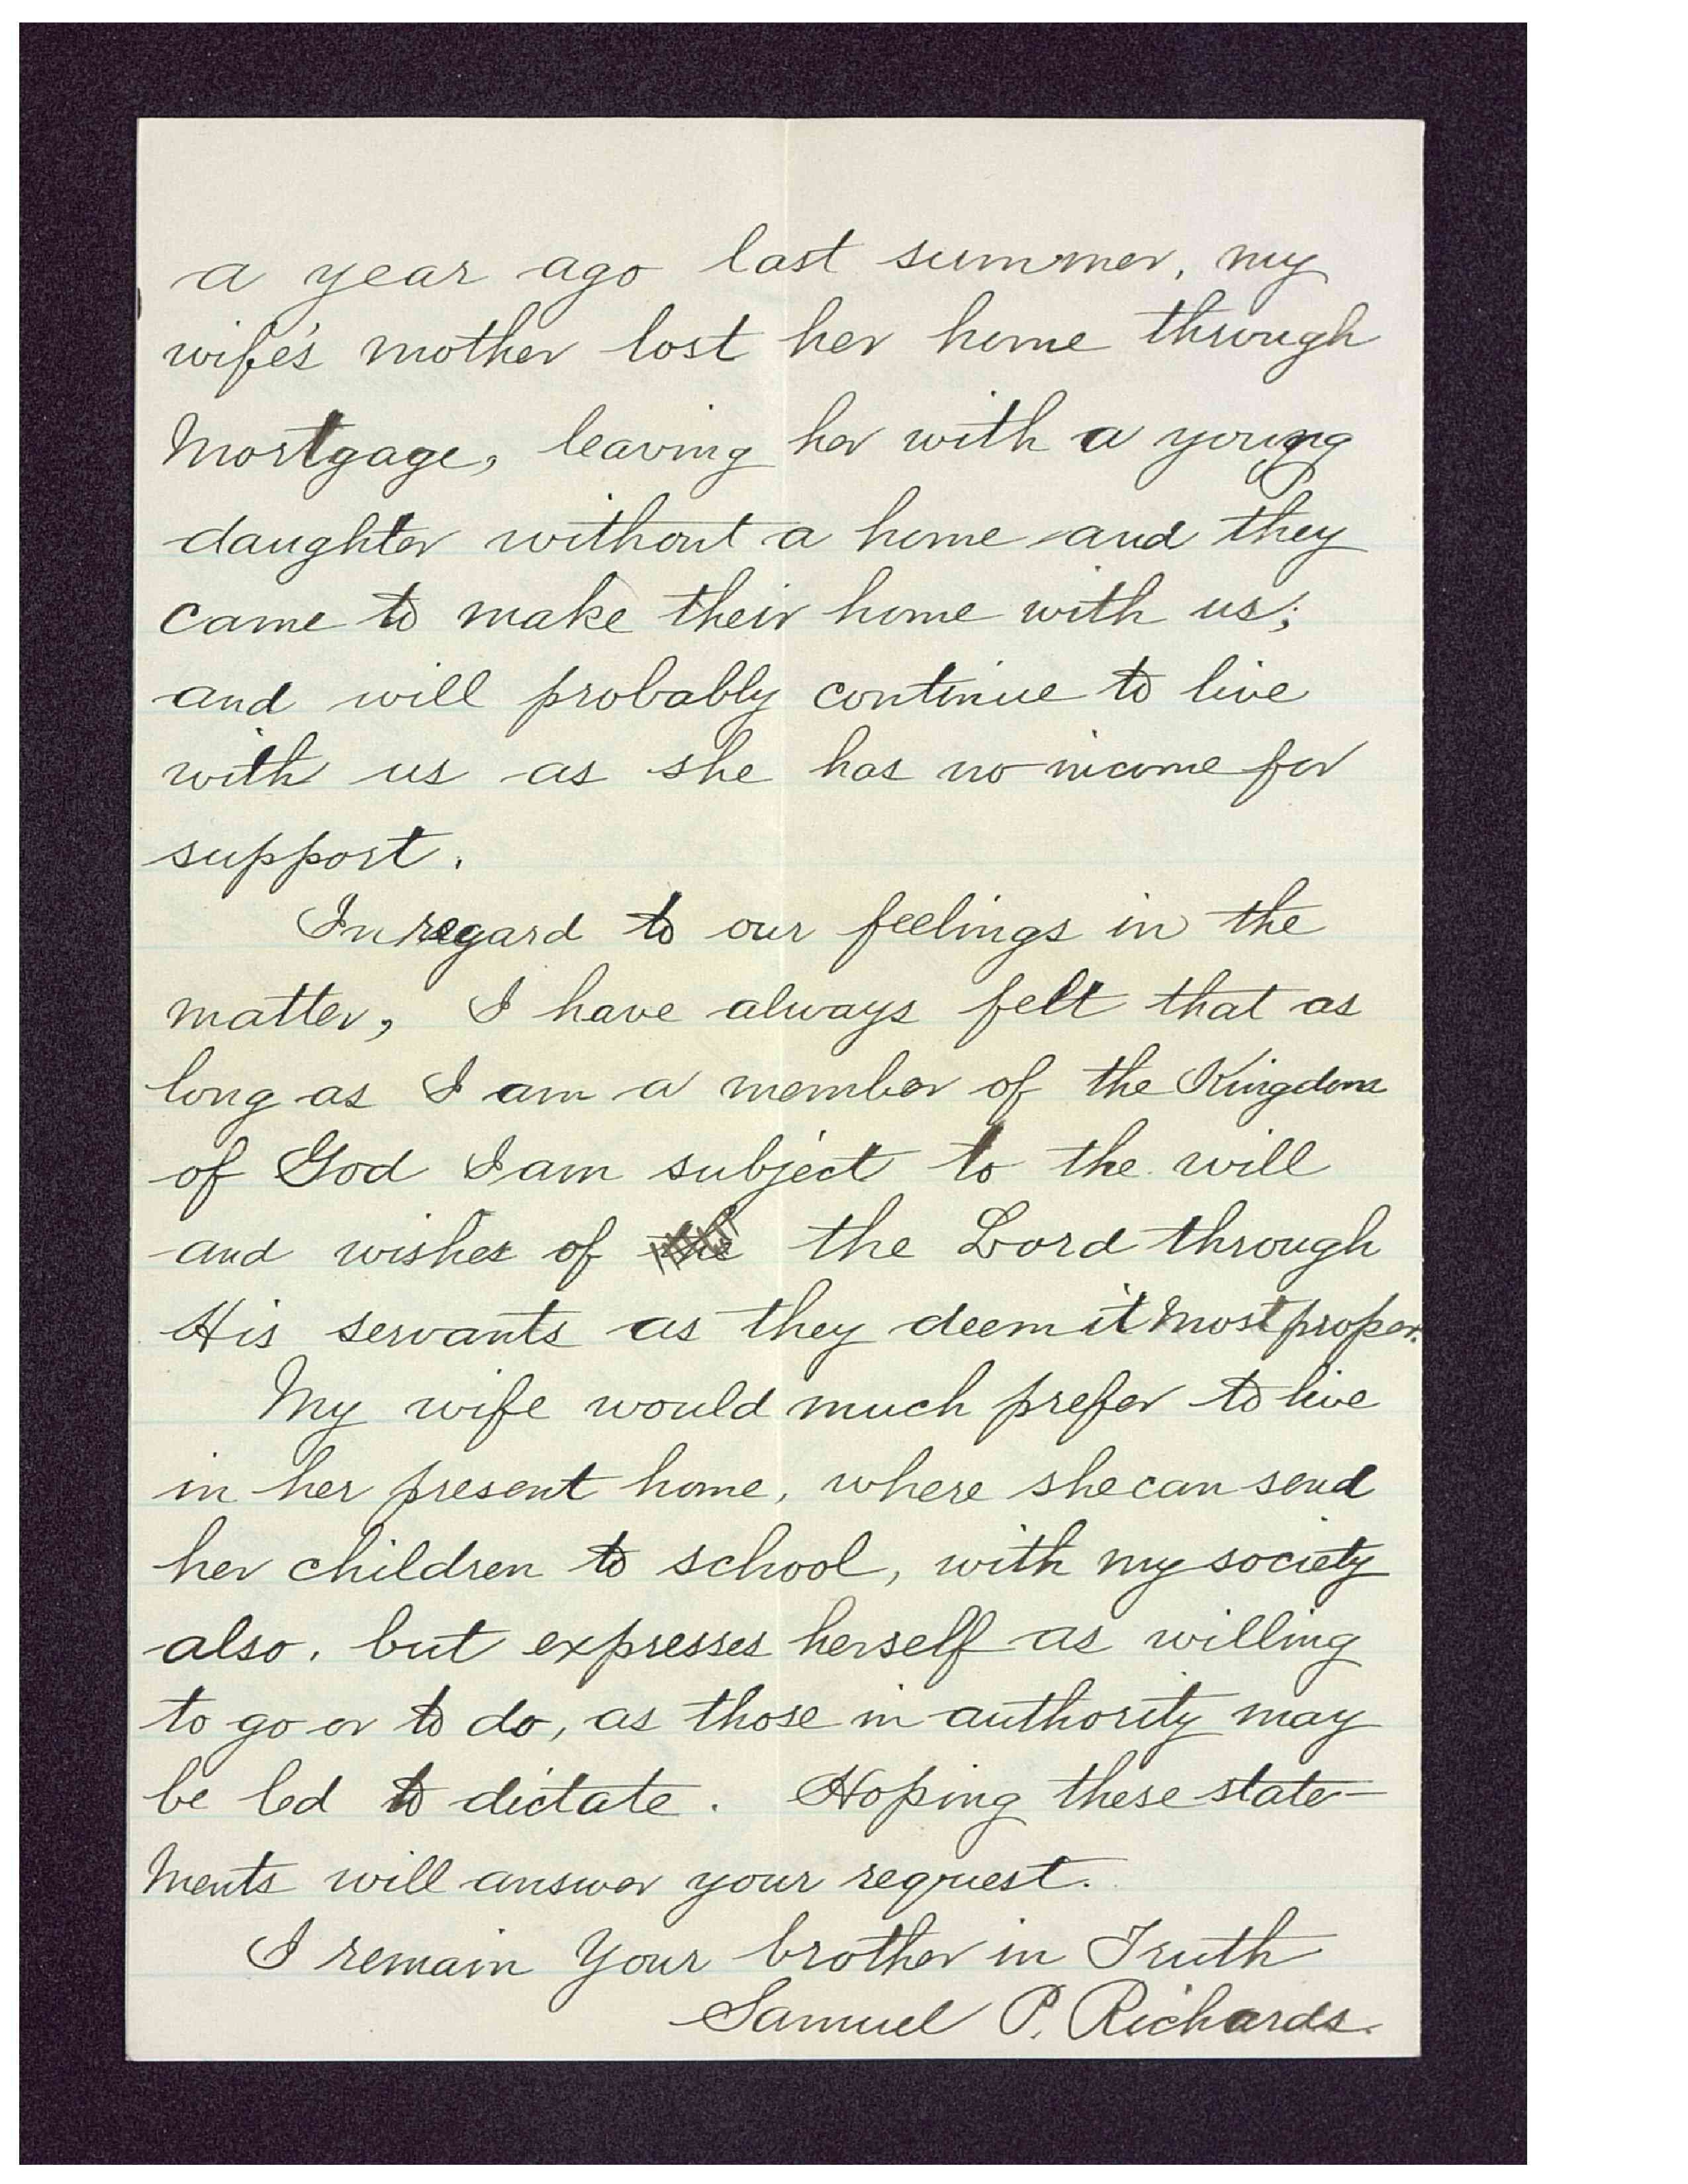 a year ago last summer, my
wife's mother lost her home through
Mortgage, leaving her with a young
daughter without a home and they
came to make their home with us;
and will probably continue to live
with us as she has no income for
support.
In regard to our feelings in the
matter, I have always felt that as
long as I am a member of the Kingdom
of God I am subject to the will
and wishes of the the Lord through
His servants as they deem it most proper.
My wife would much prefer to live
in her present home, where she can send
her children to school, with my society
also, but expresses herself as willing
to go or to do, as those in authority may
be led to dictate. Hoping these state-
ments will answer your request.
I remain Your brother in Truth
Samuel P. Richards.